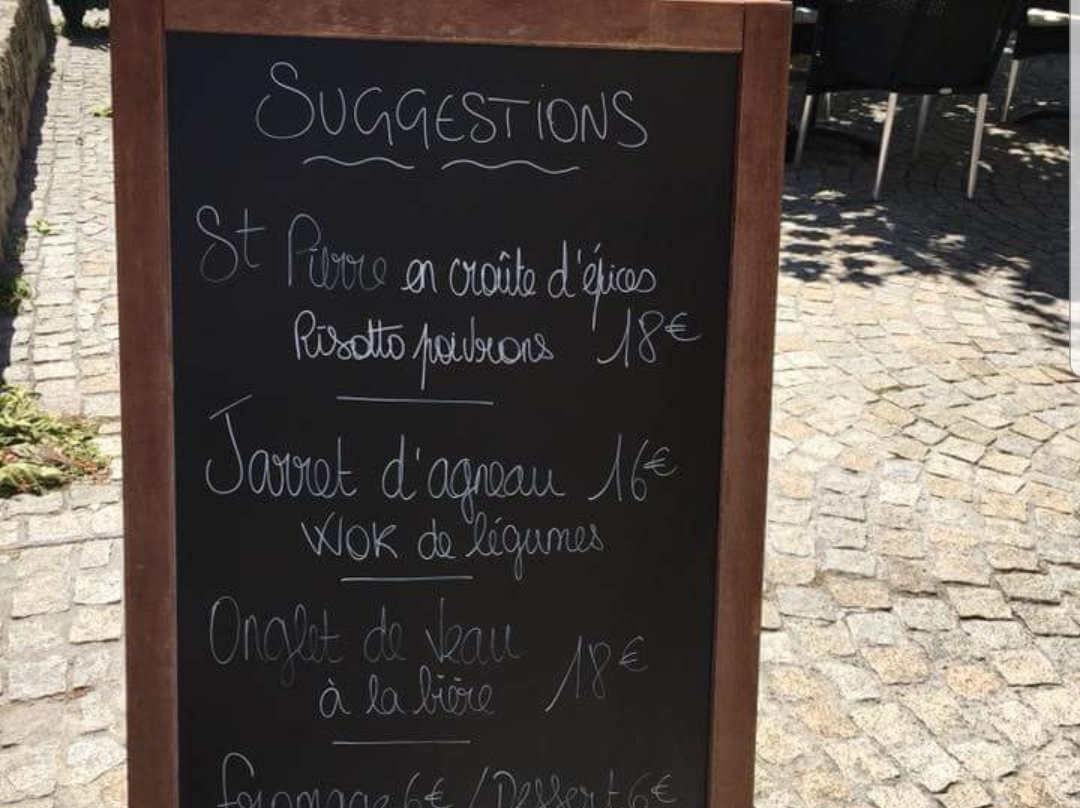 SUGGESTIONS
St Pierre en croûte d'épices
Risotto poivrons 18€
Jarret d'agneau 16€
WOK de légumes
Onglet de veau
à la bière 18€
fromage 6€ / Dessert 6€